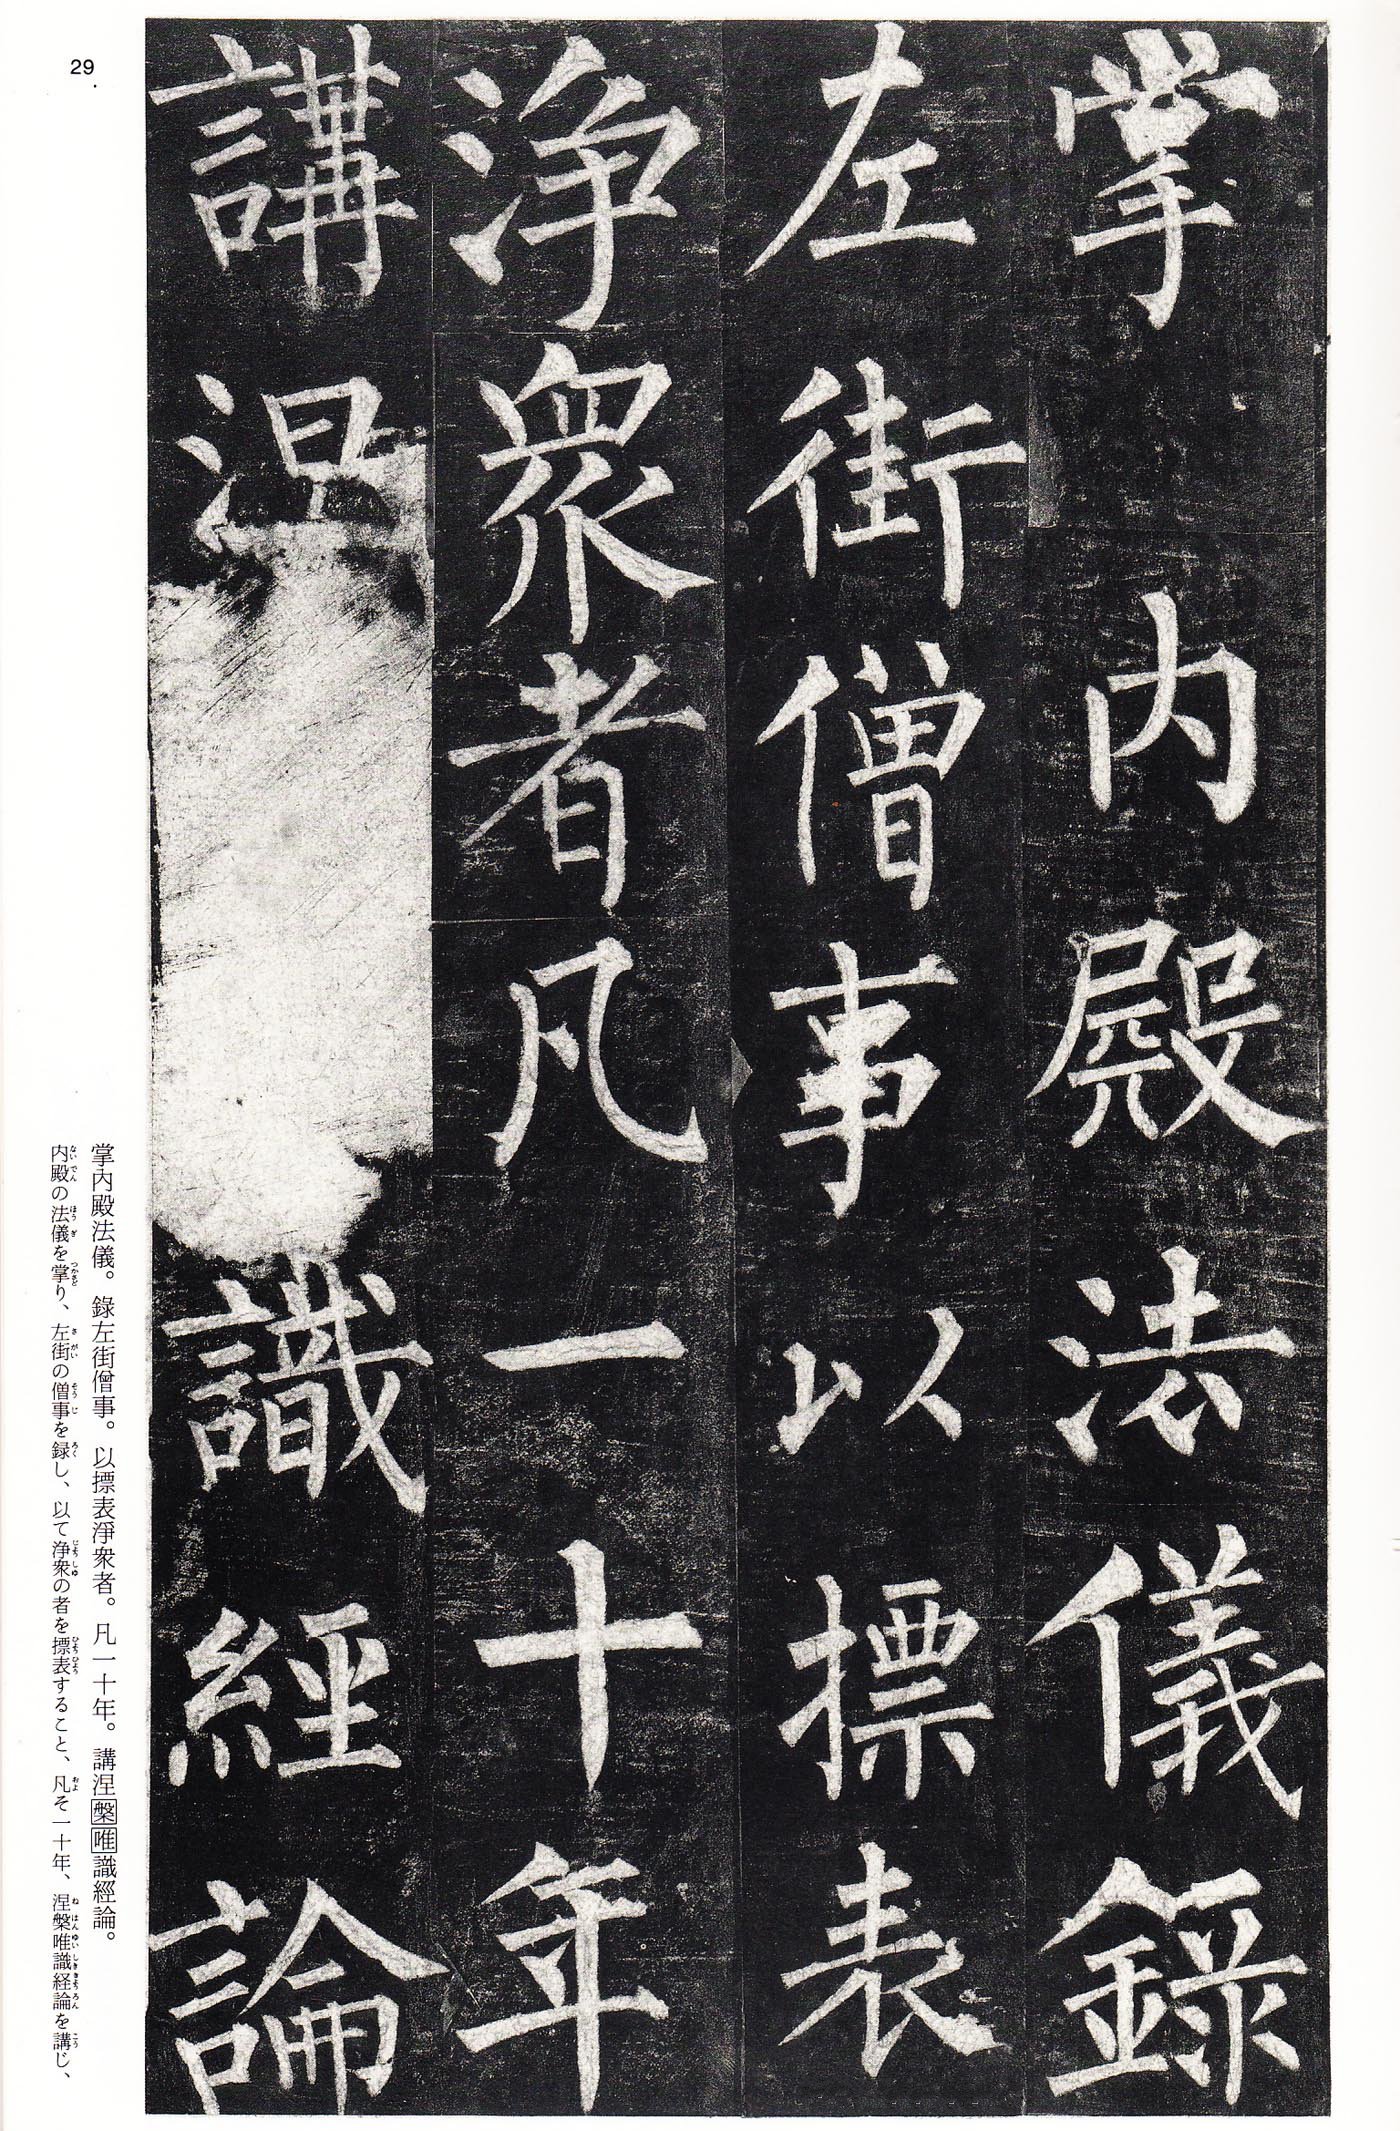 29
掌內殿法儀錄
左街僧事以摽表
浄衆者凡一十年
講涅識經論
掌內殿法儀。錄左街僧事。以摽表淨衆者。凡一十年。講涅槃唯識經論。
内殿の法儀を掌り、左街の僧事を録し、以て浄衆の者を摽表すること、凡そ一十年、涅槃唯識経論を講じ、